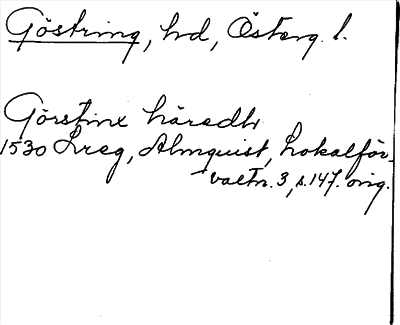 Göstring, hd, Österg. l.
Görstinx häredh
1530 Lreg, Almquist, Lokalför-
valtn. 3, s. 147. orig.